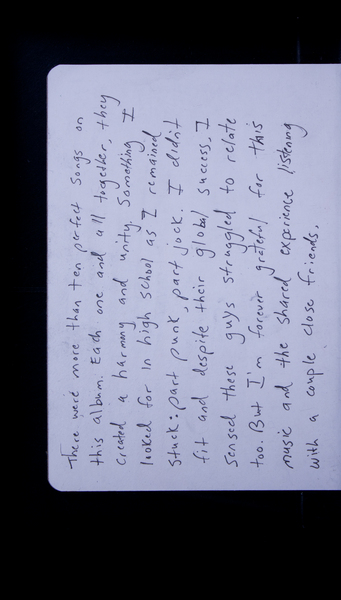 There were more than ten perfect songs on
this album. Each one and all together, they
created a harmony and unity. Something I
looked for in high school as I remained
stuck: part punk, part jock. I didn't
fit and despite their global success, I
sensed these guys struggled to relate
too. But I'm forever grateful for this
music and the shared experience listening
with a couple close friends.